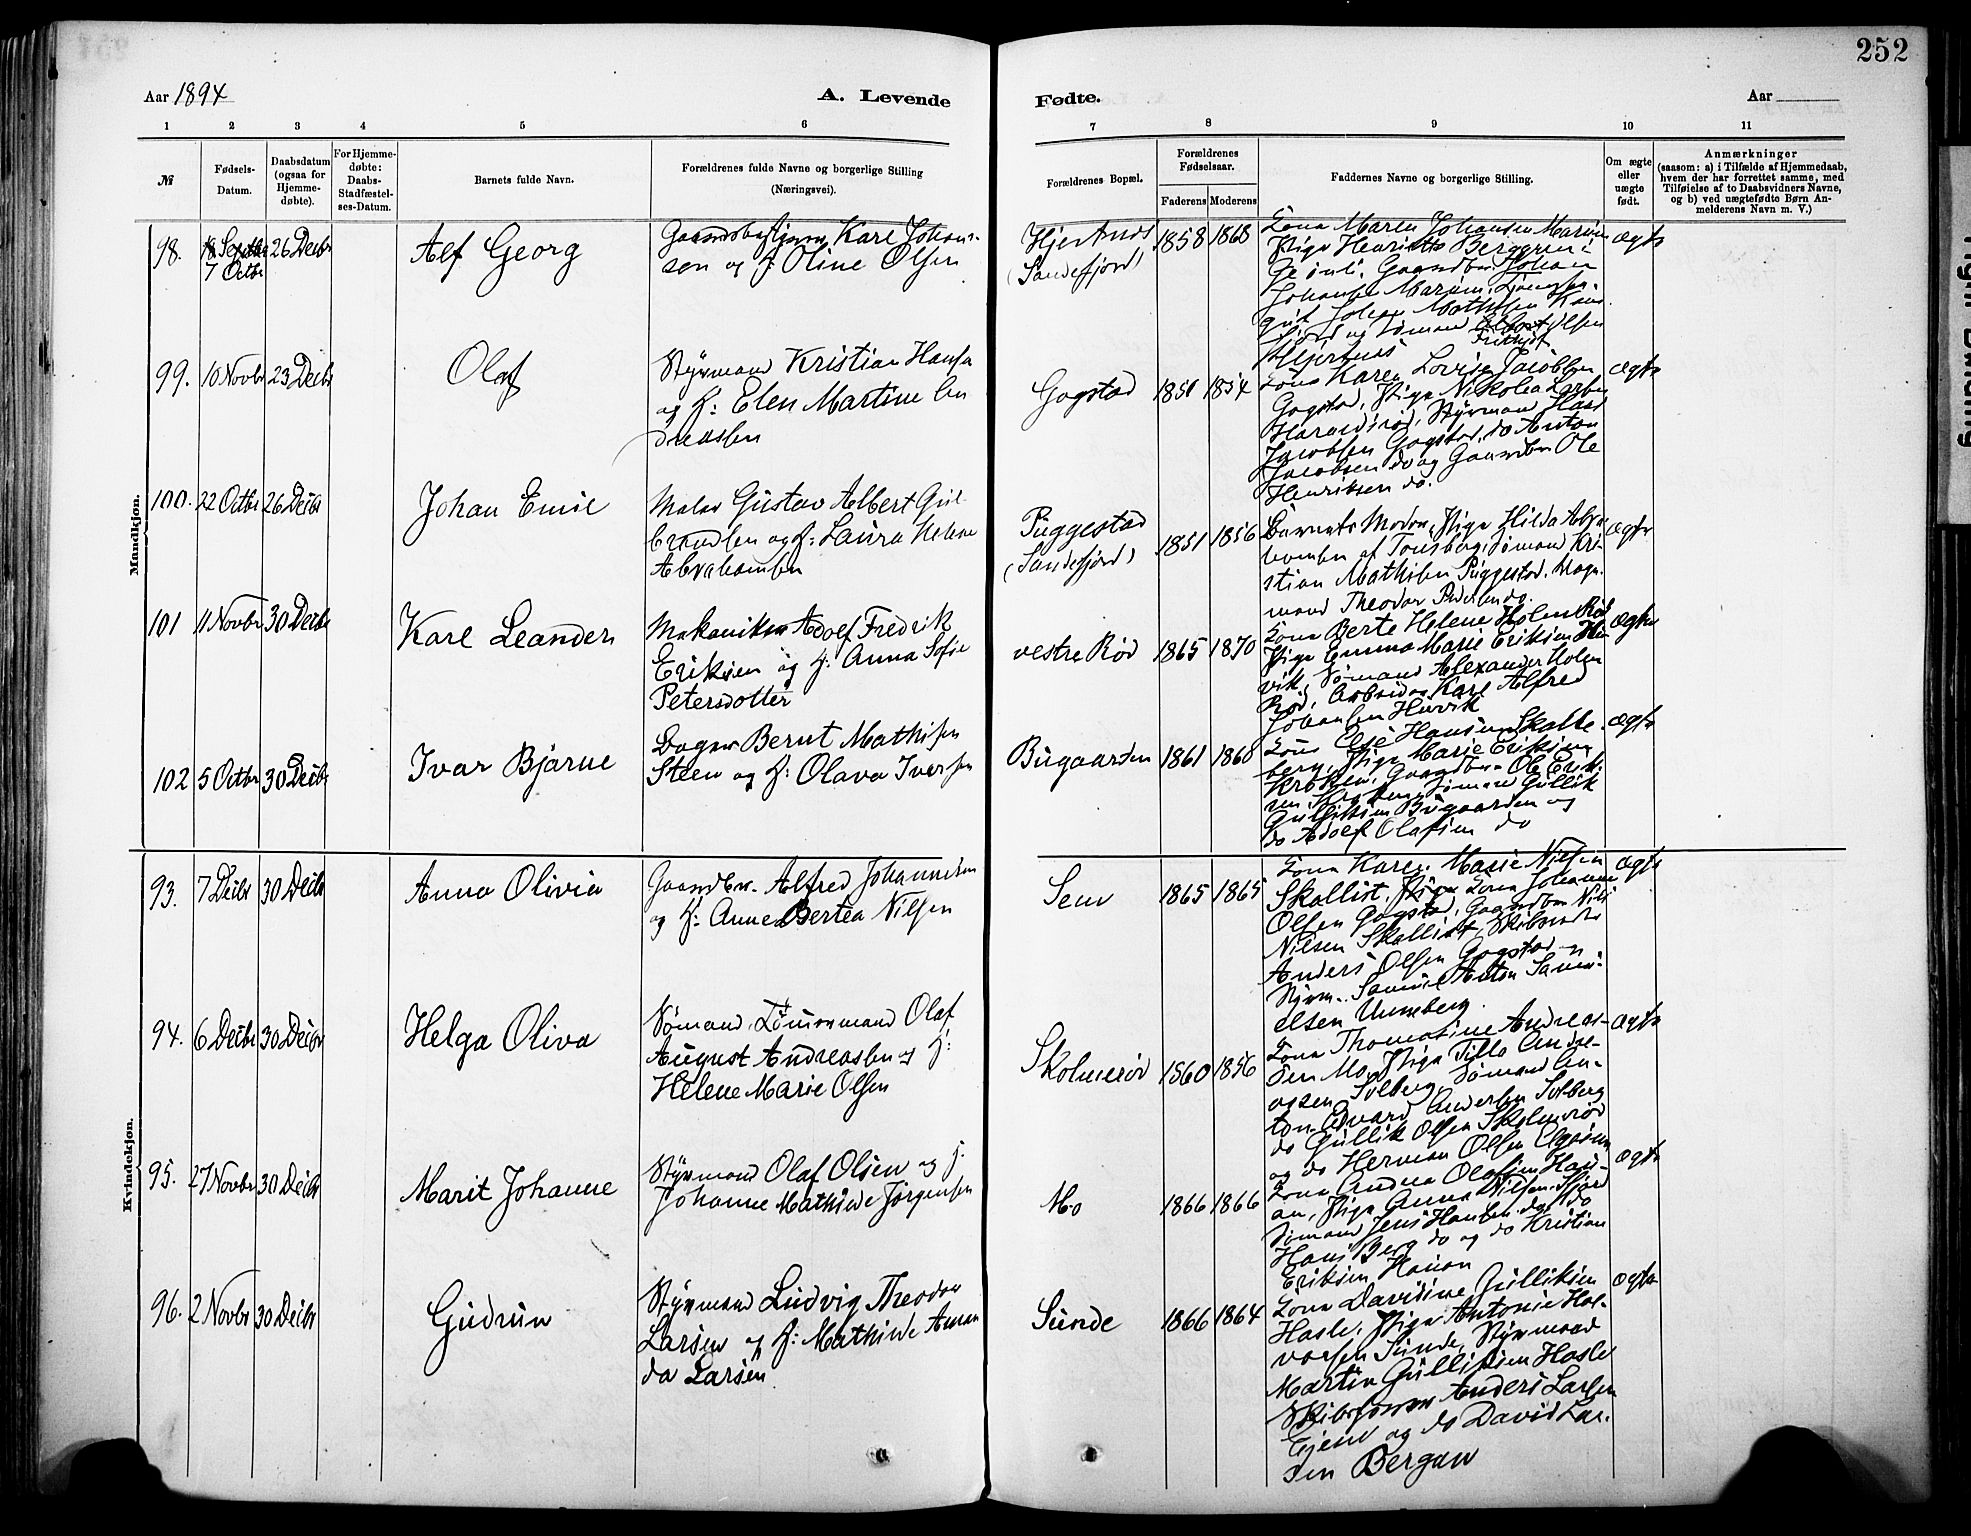 252
Aar 1894
A. Levende
Fødte.
Aar
1 2 3 4 5 6 7 8 9 10 11
№
Fødsels-
Datum.
Daabsdatum
(ogsaa for
Hjemme-
døbte).
For Hjemme-
døbte:
Daabs-
Stadfæstel-
ses-Datum.
Barnets fulde Navn.
Forældrenes fulde Navne og borgerlige Stilling
(Næringsvei).
Forældrenes Bopæl.
Forældrenes
Fødselsaar.
Faderens Moderens
Faddernes Navne og borgerlige Stilling.
Om ægte
eller
uægte
født.
Anmærkninger
(saasom: a) i Tilfælde af Hjemmedaab,
hvem der har forrettet samme, med
Tilføielse af to Daabsvidners Navne,
og b) ved uægtefødte Børn An-
melderens Navn m. V.)
Mandkjøn.
98.
7 Octbr
26 Decbr
Alf Georg
Karl Johan-
sen og H. Oline Olsen
Hjertnes
(Sandefjord)
1858 1868
Kona Maren Johansen
Pige Henriette Berggren
Gaardbr. Johan
Johansen
Johan Mathisen
og Sømand Olsen
Hjertnes
ægte
99.
10 Novbr
23 Decbr
Olaf
Styrmand Kristian Hansen
og H: Elen Martine An
dreassen
Gogstad
1851 1854
Kona Karen Lovise Jacobsen
Gogstad, Pige Nikolea Larsen
Styrmand
Jacobsen Gogstad, do Anton
Jacobsen do og Gaardbr Ole
Henriksen do.
ægte
100.
22 Octbr
26 Decbr
Johan Emil
Maler Gustav Albert Gul-
brandsen og H: Laura Helene
Abrahamsen
Puggestad
(Sandefjord)
1851 1856
Barnets Moder, Pige Hilda Abra
hamsen af Tønsberg, Sømand Kri-
stian Mathisen Puggestad.
mand Theodor Pedersen do.
ægte
101
11 Novbr
30 Decbr
Karl Leander
Mekaniker Adolf Fredrik
Eriksen og H: Anna Sofie
Petersdotter
vestre Rød
1865 1870
Kona Berte Helene Holm Rød
Pige Emma Marie Eriksen Hu-
vik, Sømand Alexander Holm
Rød, Arbeider Karl Alfred
Johansen Huvik
ægte
102
5 Octbr
30 Decbr
Ivar Bjarne
Bager Bernt Mathisen
Steen og H: Olava Iversen
Bugaarden
1861 1868
Kona Else Hansen Skalle-
berg, Pige Marie Eriksen
Krokken, Gaardbr. Ole Erik-
sen Sømand Gullik
Gulliksen Bugaarden og
do Adolf Olafsen do
ægte
Kvindekjøn.
93.
7 Decbr
30 Decbr
Anna Olivia
Gaardbr. Alfred Johannesen
og H: Anne Bertea Nilsen
Sem
1865 1865
Kona Karen Marie Nilsen
Skallist, Pige Lona Johanne
Olsen Gogstad, Gaardbr. Nils
Nilsen Skallist, Skibsreder
Anders Olsen Gogstad og
Styrm. Samuel Anton Samu-
elsen Unneberg.
ægte
94.
6 Decbr
30 Decbr
Helga Oliva
Sømand, Tømmermand Olaf
August Andreassen og H:
Helene Marie Olsen
Skolmerød
1860 1856
Kona Thomasine Andreas-
sen Mo, Pige Tilla Andre-
assen Solberg, Sømand An-
ton Edvard Andersen Solberg
do Gullik Olsen Skolmerød
og do Herman Olsen
ægte
95.
27 Novbr
30 Decbr
Marit Johanne
Styrmand Olaf Olsen og H.
Johanne Mathilde Jørgensen
Mo
1866 1866
Kona Andrea Olafsen Hau-
an, Pige Anna Nilsen Fjord
Sømand Jens Hansen do, do
Hans Berg do og do Kristian
Eriksen Hauan
ægte
96.
2 Novbr
30 Decbr
Gudrun
Styrmand Ludvig Theodor
Larsen og H: Mathilde Aman
da Larsen
Sunde
1866 1864
Kona Davidine Gulliksen
Hasle, Pige Antonie Hal-
vorsen Sunde, Styrmand
Martin Gulliksen Hasle
Skibsfører Anders Larsen
og do David Lar-
sen Bergan
ægte